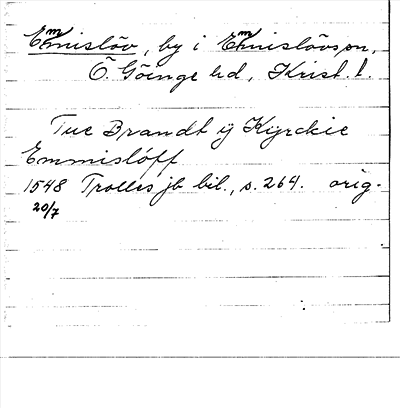 Emmislöv, by i Emmislövs sn,
Ö. Göinge hd, Krist. l.
Tue Brandt ÿ Kyrckie
Emmislóff
1548 Trolles jb bil., s. 264. orig.
20/7